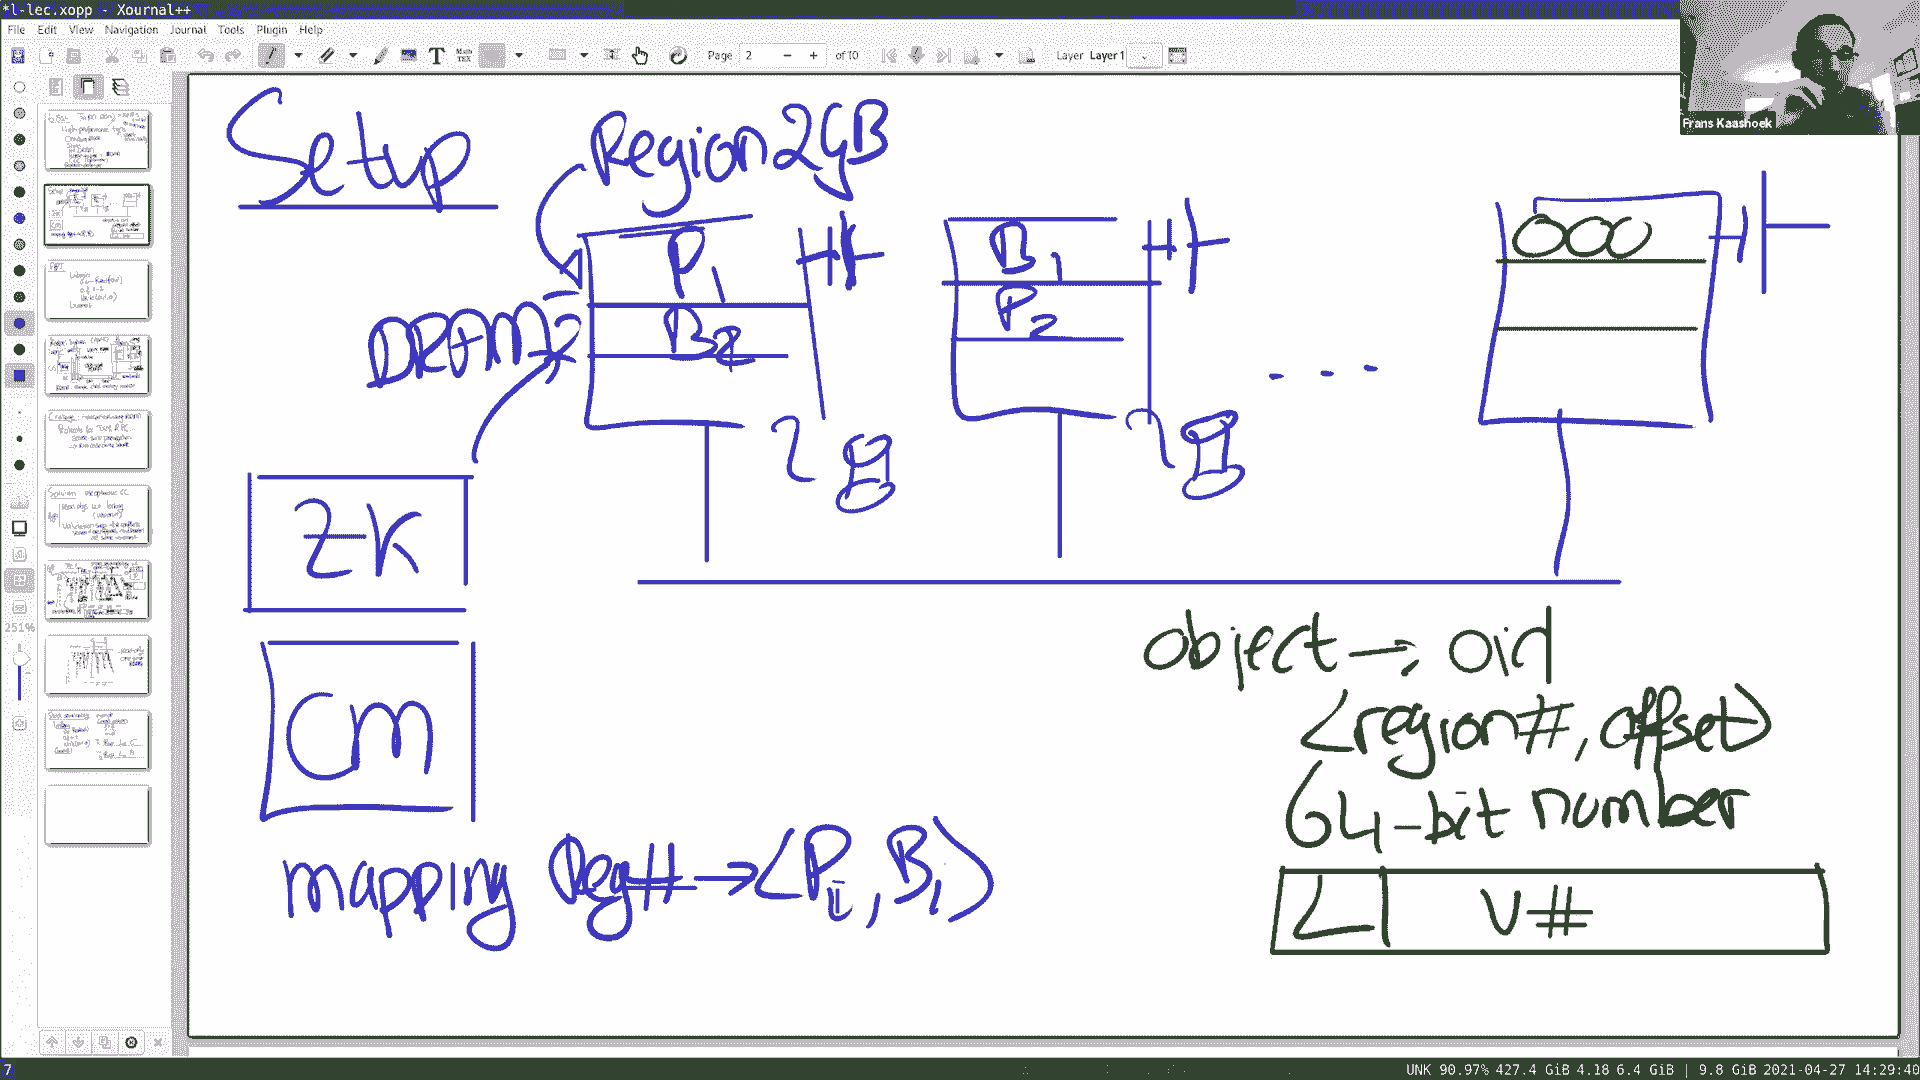 *l-lec.xopp - Xournal++
File Edit View Navigation Journal Tools Plugin Help
Page 2 of 10 Layer Layer 1
Frans Kaashoek
251%
Setup
Region 2GB
DRAM
P1
B2
B1
P2
OOO
ZK
CM
mapping Reg# → <P1, B1>
object → oid
<region#, offset>
64-bit number
L V#
7
UNK 90.97% 427.4 GiB 4.18 6.4 GiB | 9.8 GiB 2021-04-27 14:29:40